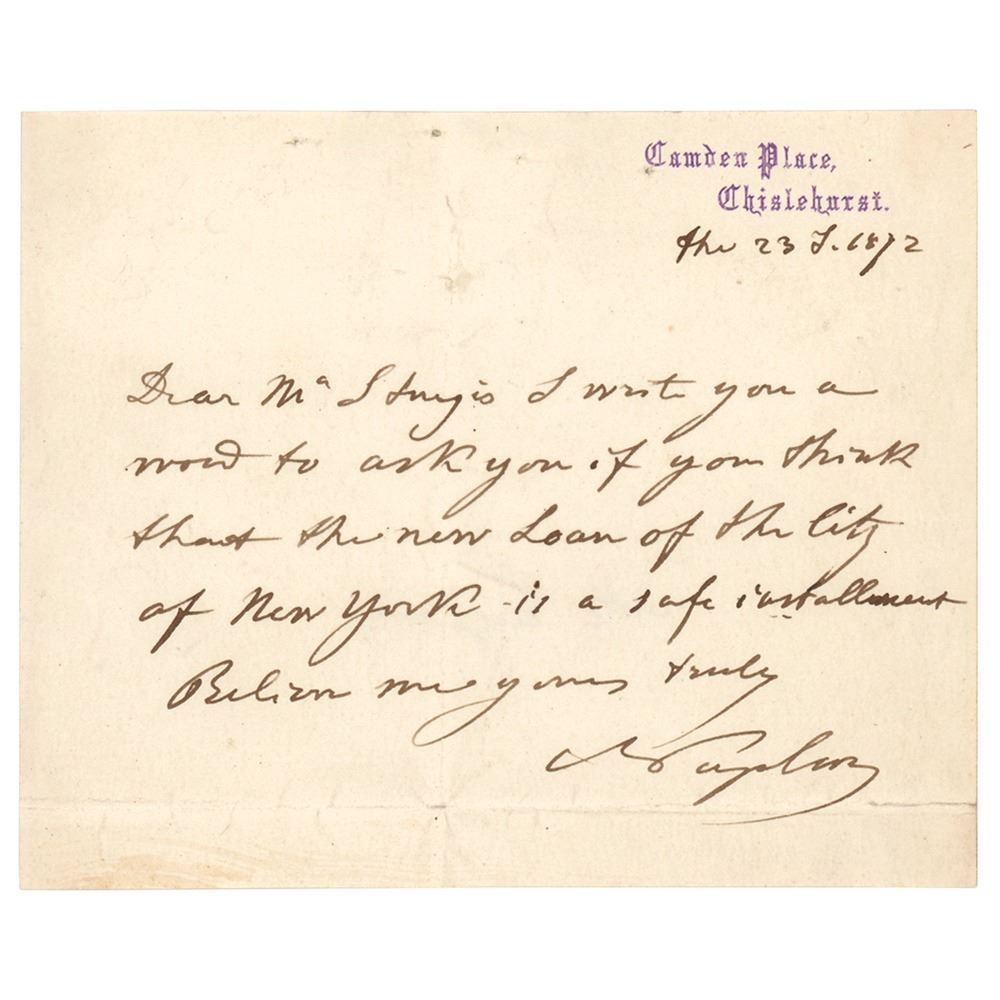 Camden Place,
Chislehurst.
the 23 J. 1872
Dear Mr Sturgis I write you a
word to ask you if you think
that the new Loan of the City
of New York is a safe installment
Believe me yours truly
Napoleon